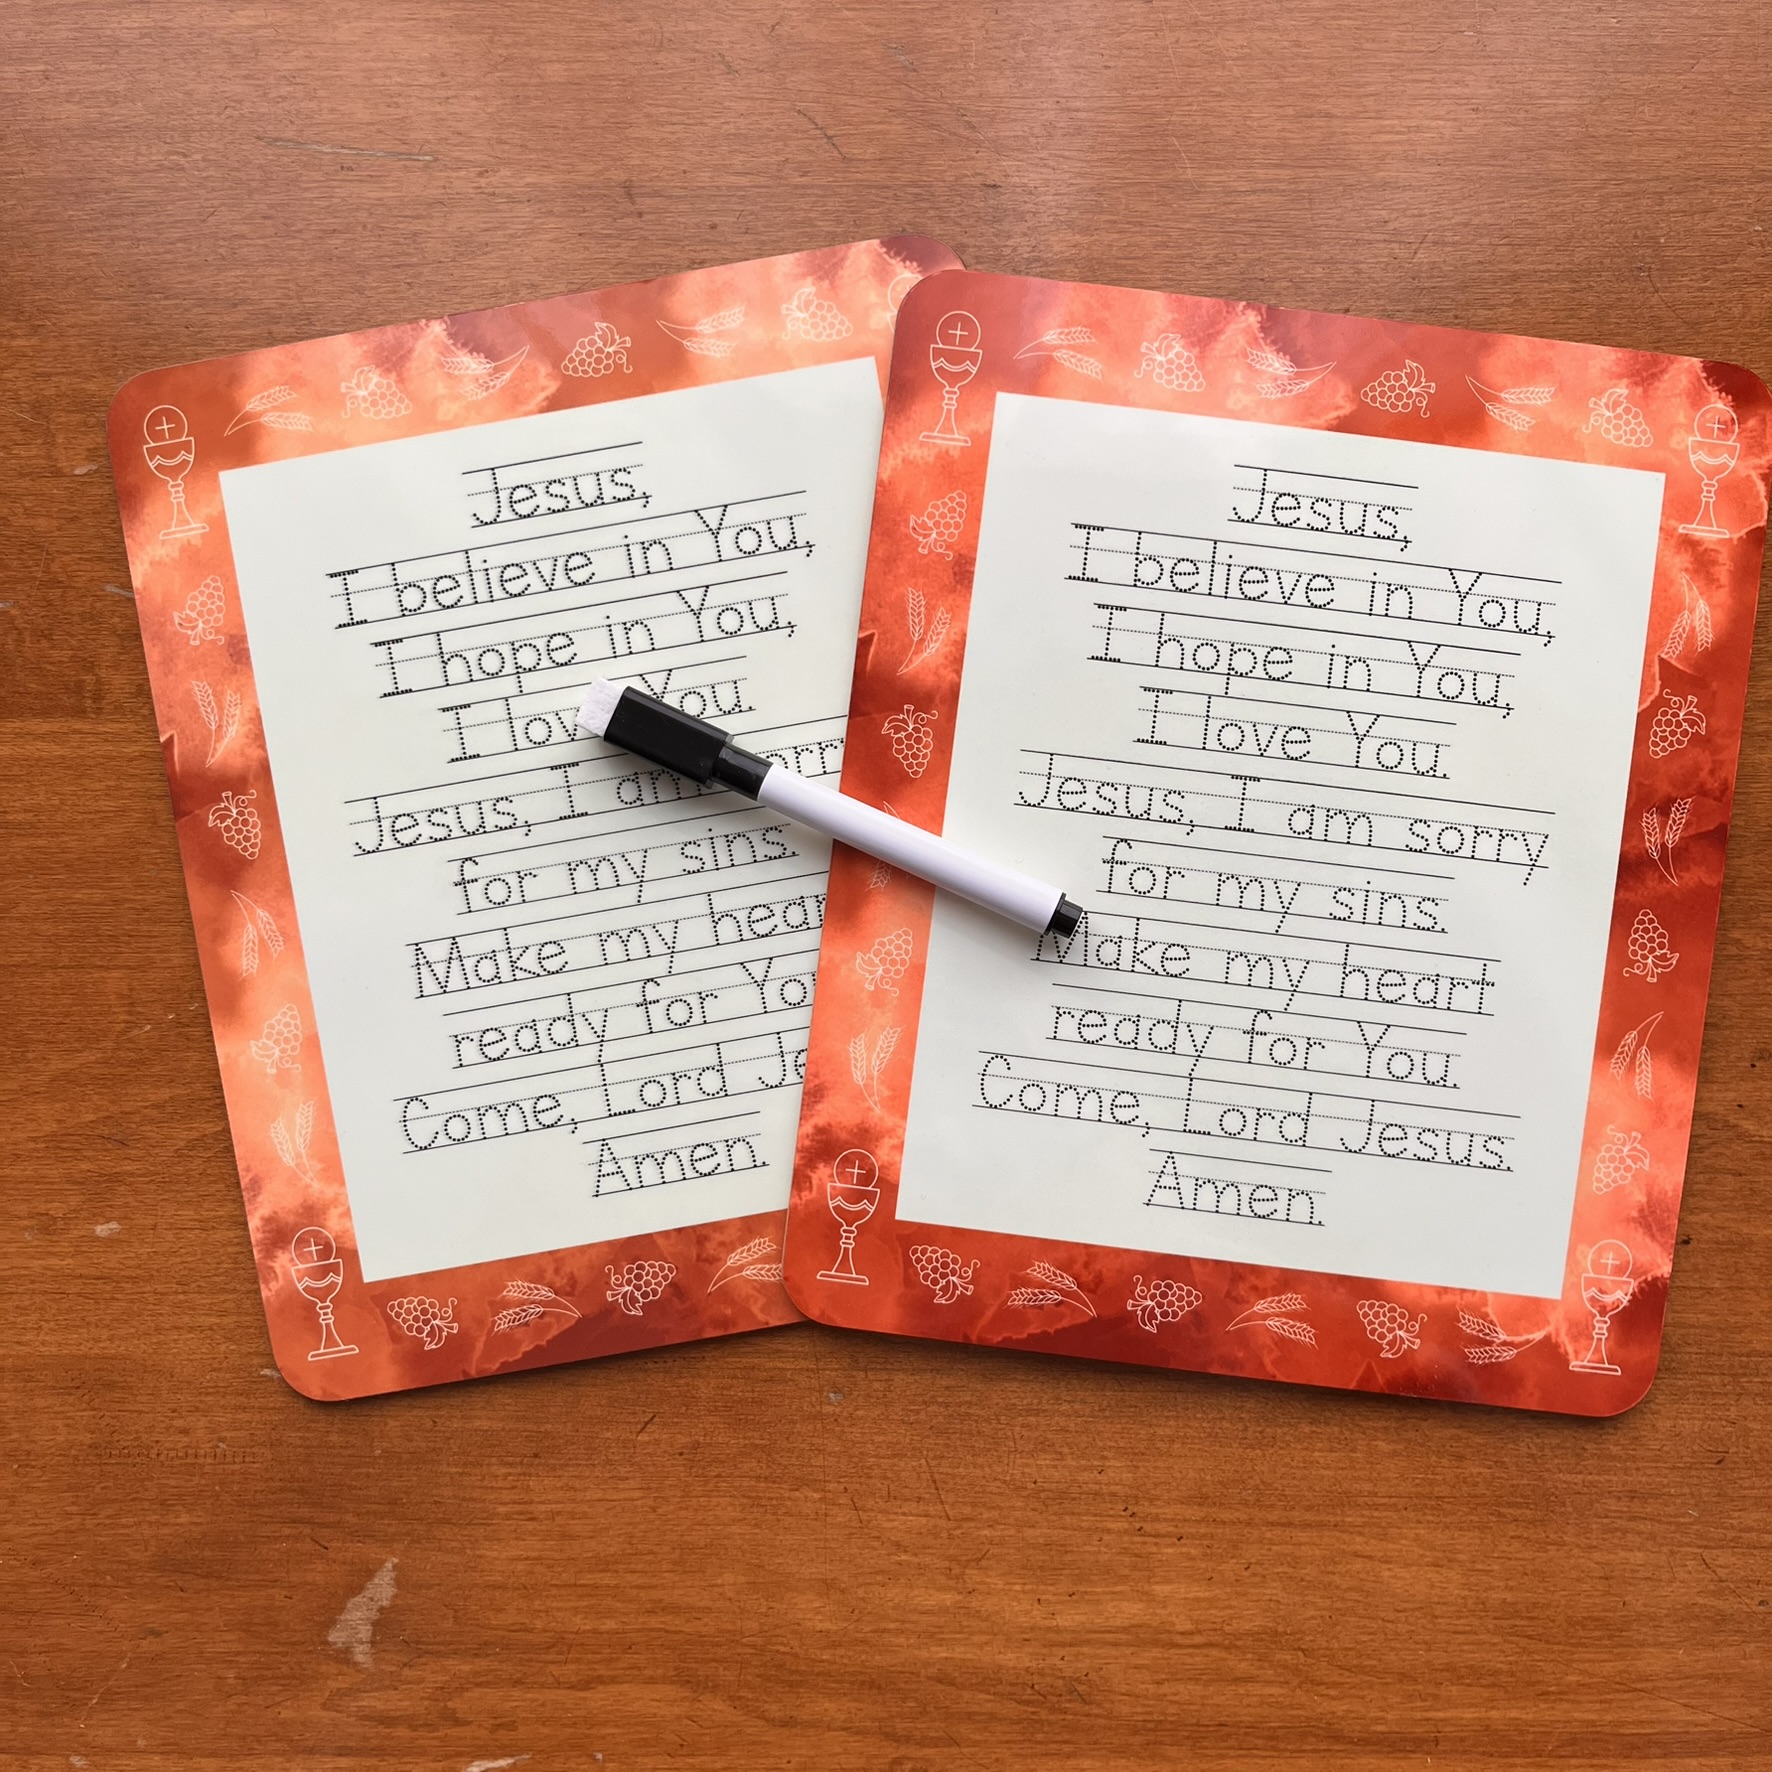 Jesus,
I believe in You,
I hope in You,
I lov You.
Jesus, I am
for my sins.
Make my
ready for
Come, Lord
Amen.
Jesus,
I believe in You,
I hope in You,
I love You.
Jesus, I am sorry
for my sins.
Make my heart
ready for You.
Come, Lord Jesus.
Amen.